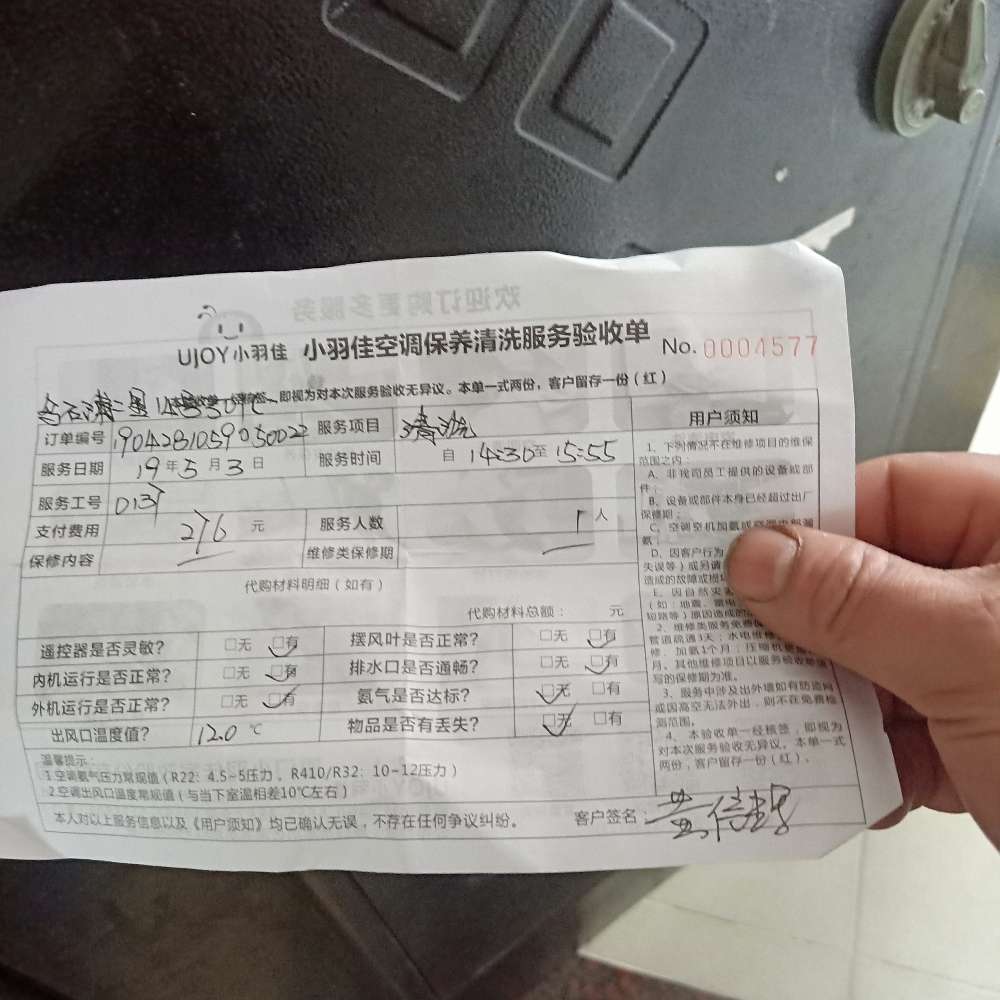 欢迎订购更多服务
UJOY小羽佳 小羽佳空调保养清洗服务验收单 No. 0004577
即视为对本次服务验收无异议。本单一式两份，客户留存一份（红）
订单编号 服务项目 清洗
服务日期 19年5月3日 服务时间 自 14:30至 15:55
服务工号
支付费用 276 元 服务人数 1 人
保修内容 维修类保修期
代购材料明细（如有）
代购材料总额： 元
遥控器是否灵敏？ □无 □有 摆风叶是否正常？ □无 □有
内机运行是否正常？ □无 □有 排水口是否通畅？ □无 □有
外机运行是否正常？ □无 □有 氨气是否达标？ □无 □有
出风口温度值？ 12.0 ℃ 物品是否有丢失？ □无 □有
温馨提示：
1.空调氨气压力常规值（R22：4.5~5压力，R410/R32：10~12压力）
2.空调出风口温度常规值（与当下室温相差10℃左右）
本人对以上服务信息以及《用户须知》均已确认无误，不存在任何争议纠纷。 客户签名：
用户须知
1、下列情况不在维修项目的维保
范围之内：
A、非我司员工提供的设备或部
件；
B、设备或部件本身已经超过出厂
保修期；
C、空调空机加氨或
氨；
D、因客户行为
失误等）或另请
造成的故障或损
E、因自然灾
（如：地震、雷电
短路等）原因造成的
2、维修类服务免费
管道疏通1天；水电维修
修、加氨1个月；压缩机
月。其他维修项目以服务验收单填
写的保修期为准。
3、服务中涉及出外墙如有防盗网
或因高空无法外出，则不在免费检
测范围。
4、本验收单一经核签，即视为
对本次服务验收无异议。本单一式
两份，客户留存一份（红）。